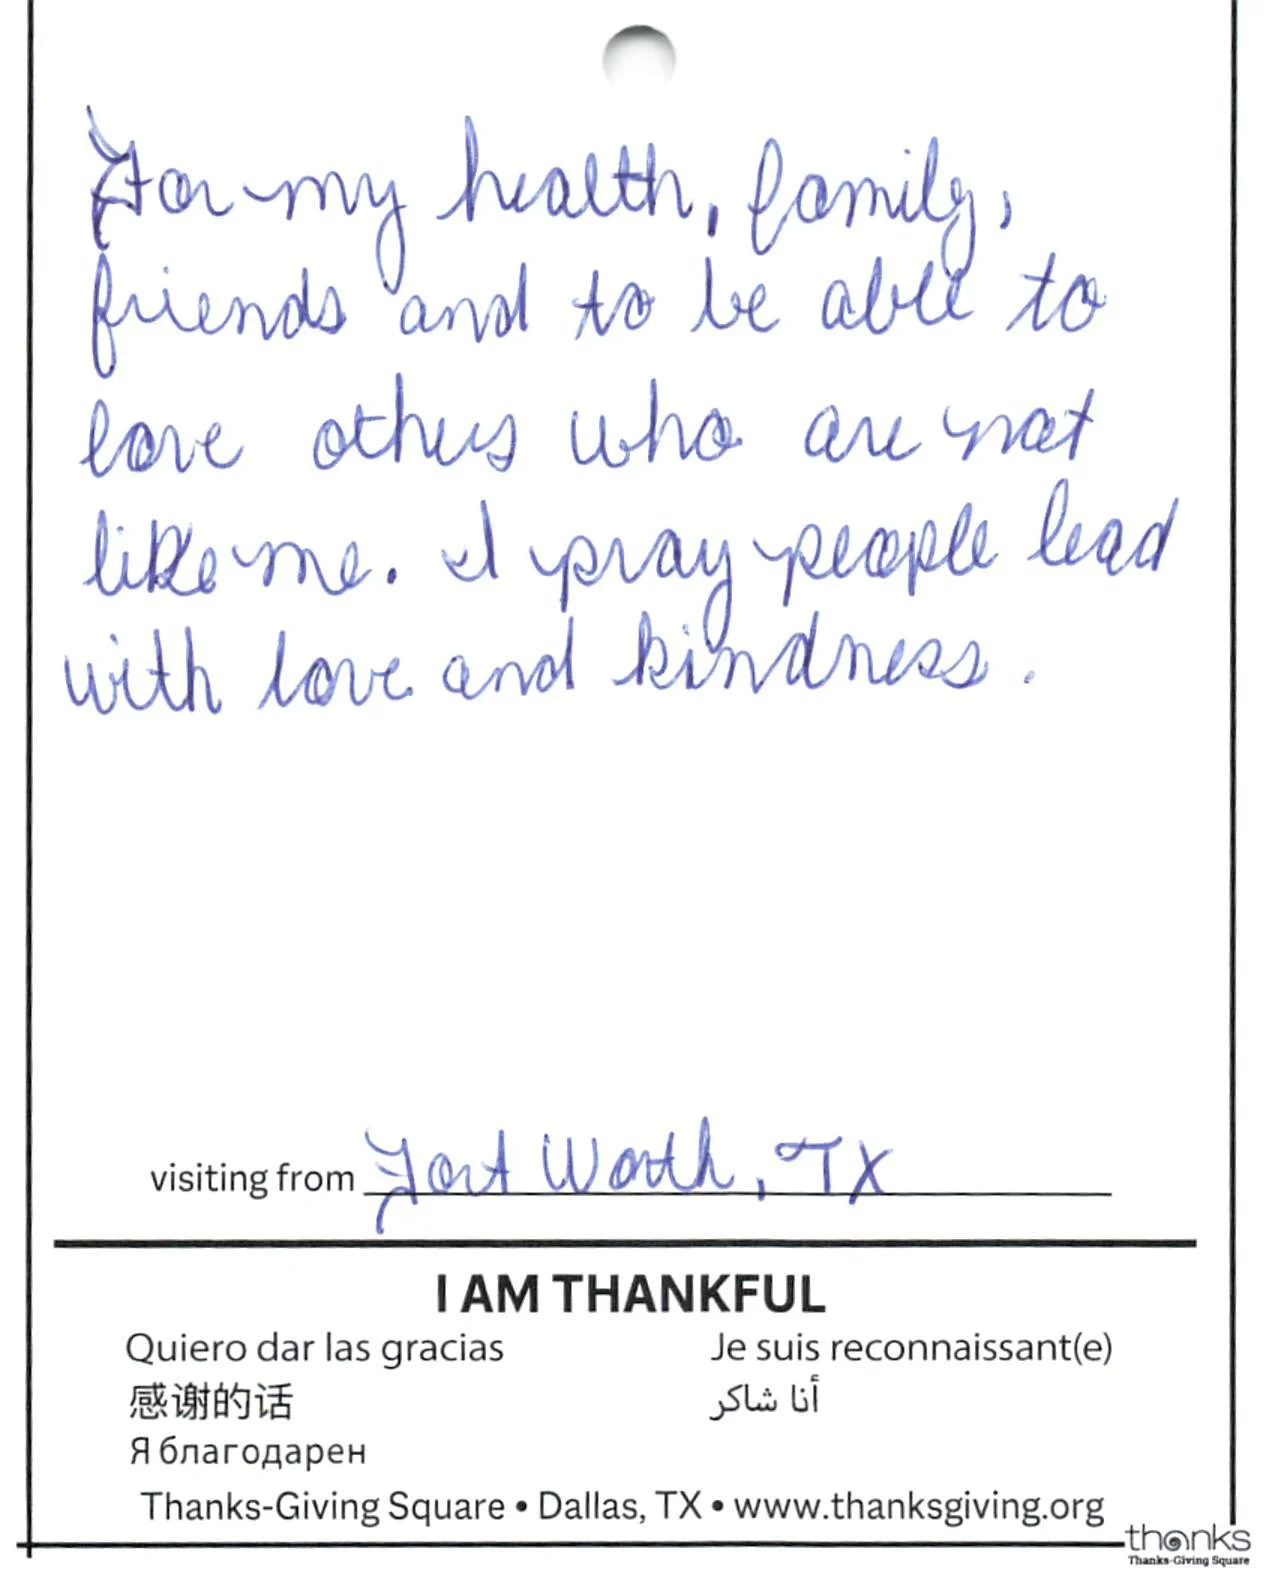 For my health, family,
friends and to be able to
love others who are not
like me. I pray people lead
with love and kindness.
visiting from Fort Worth, TX
I AM THANKFUL
Quiero dar las gracias
Je suis reconnaissant(e)
感谢的话
أنا شاكر
Я благодарен
Thanks-Giving Square • Dallas, TX • www.thanksgiving.org
thanks
Thanks-Giving Square